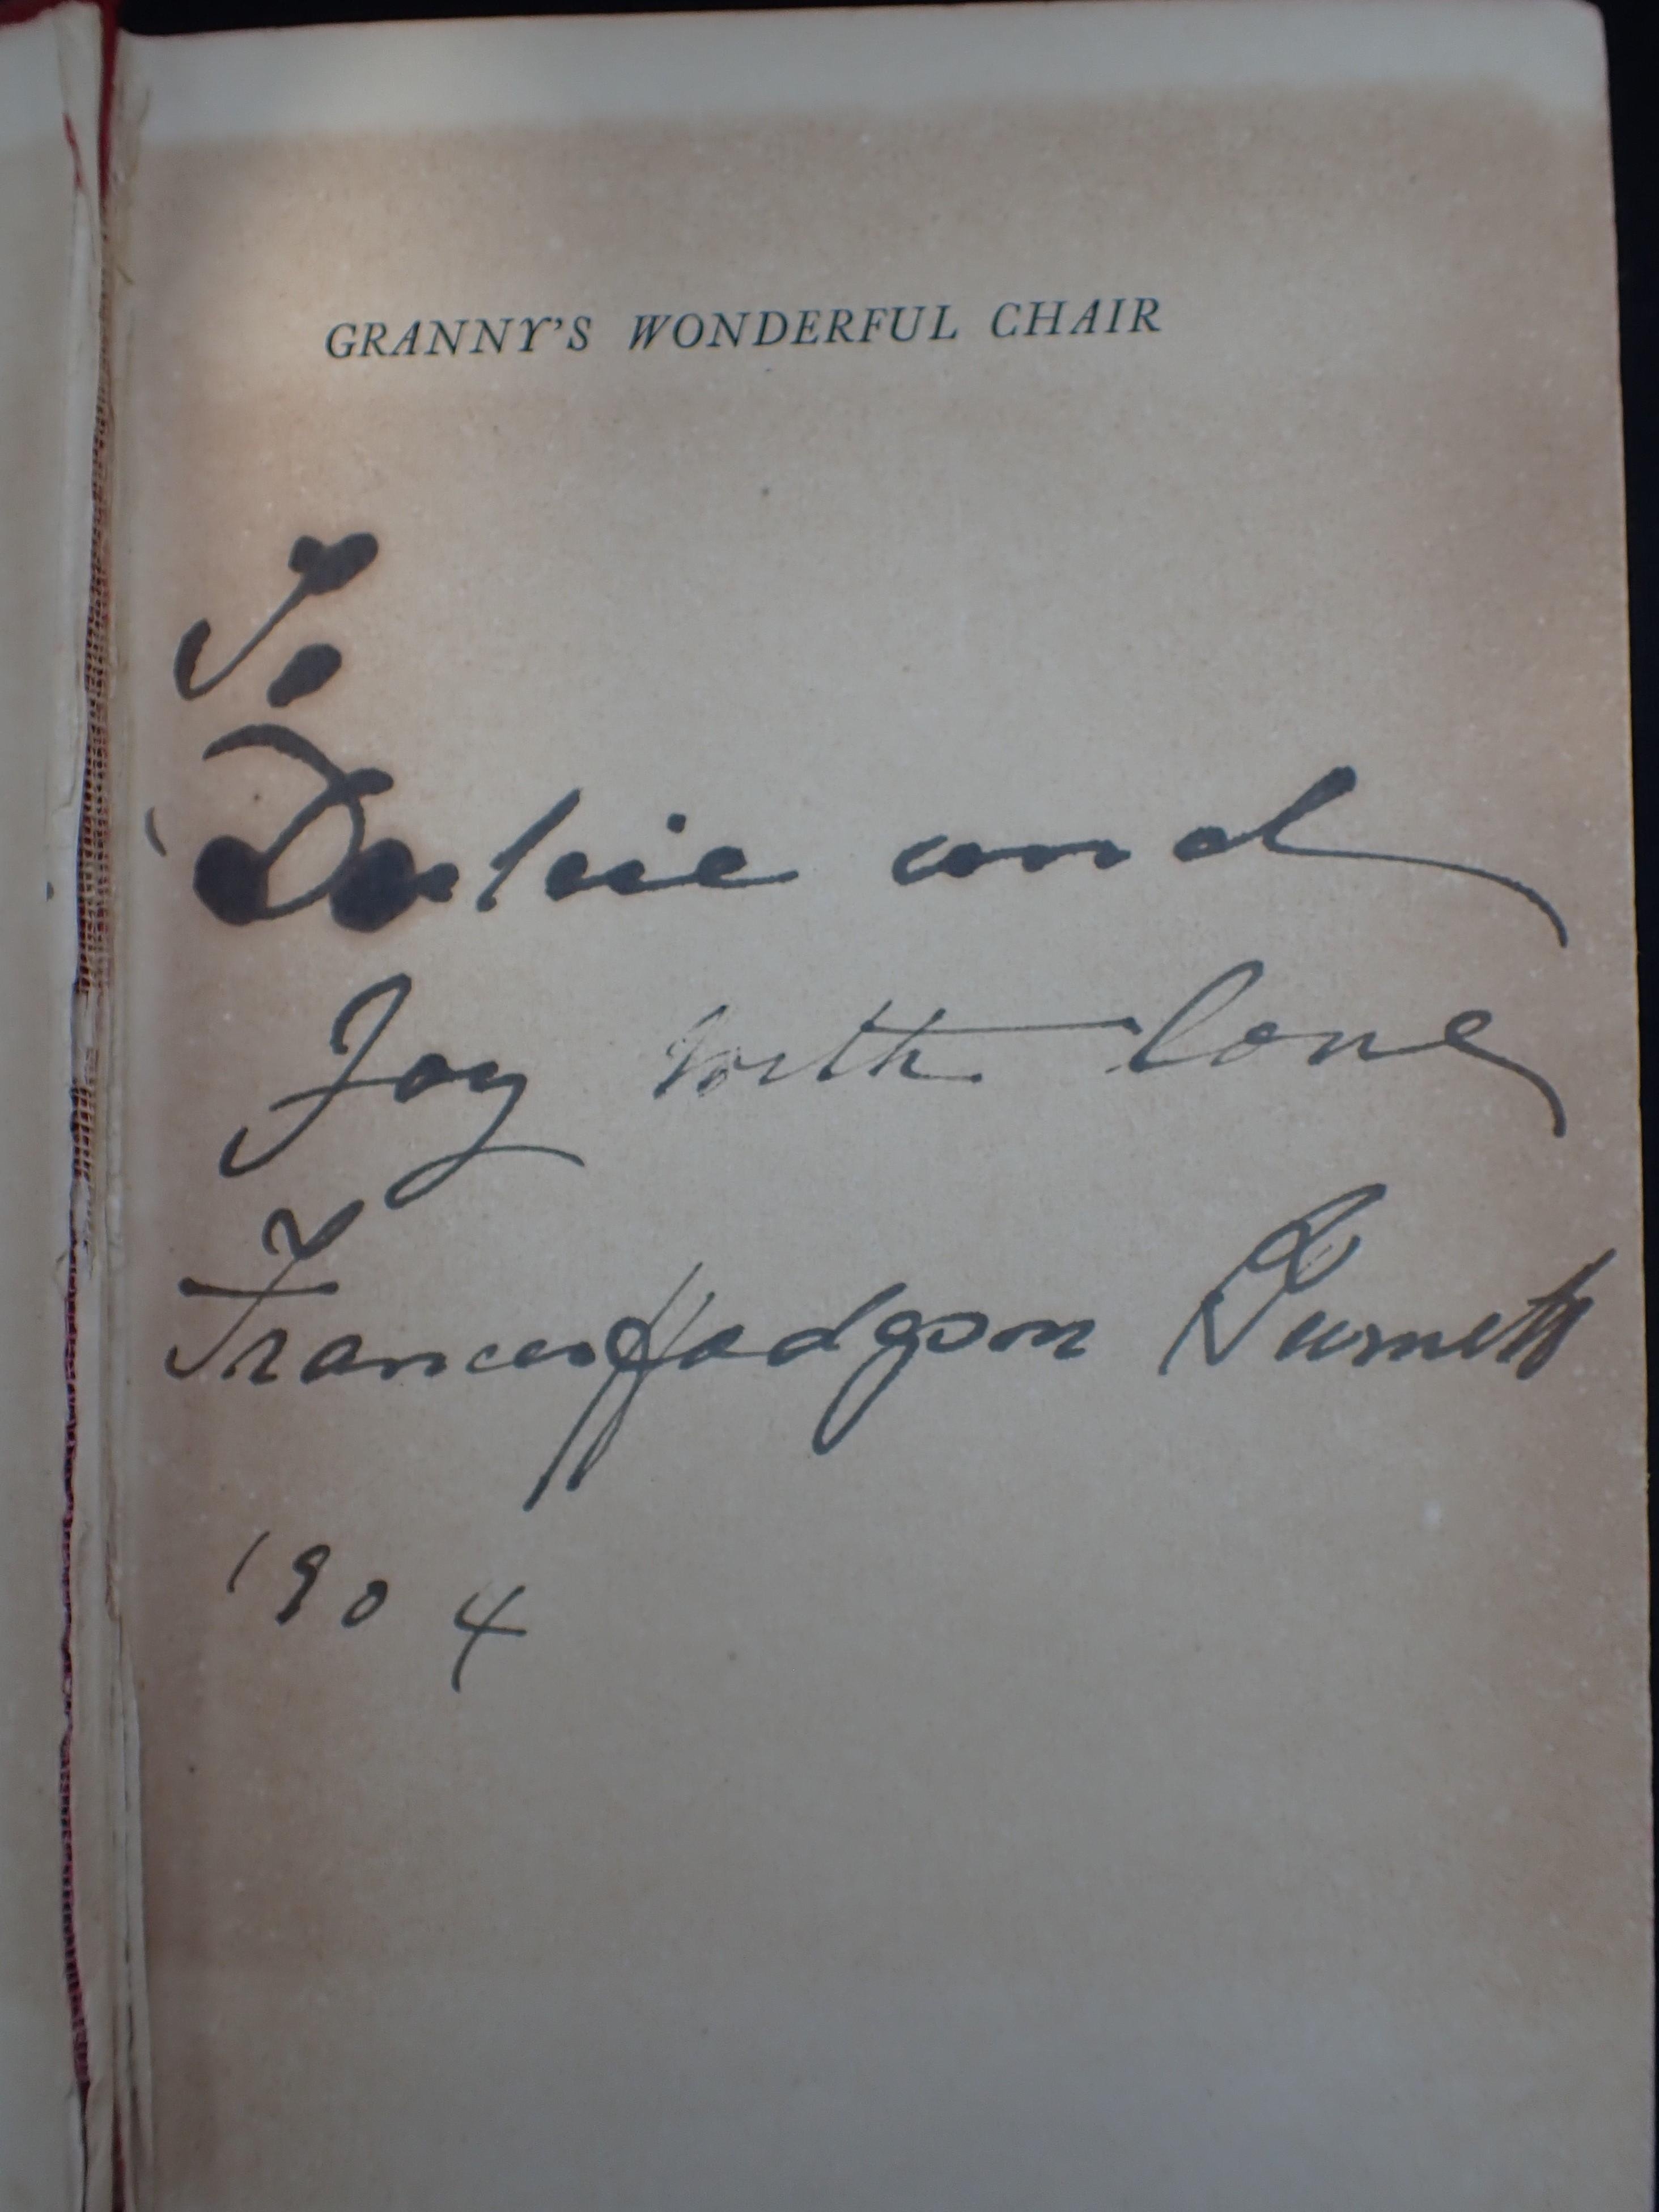 GRANNY'S WONDERFUL CHAIR
To
Dulcie and
Joy with love
Frances Hodgson Burnett
1904